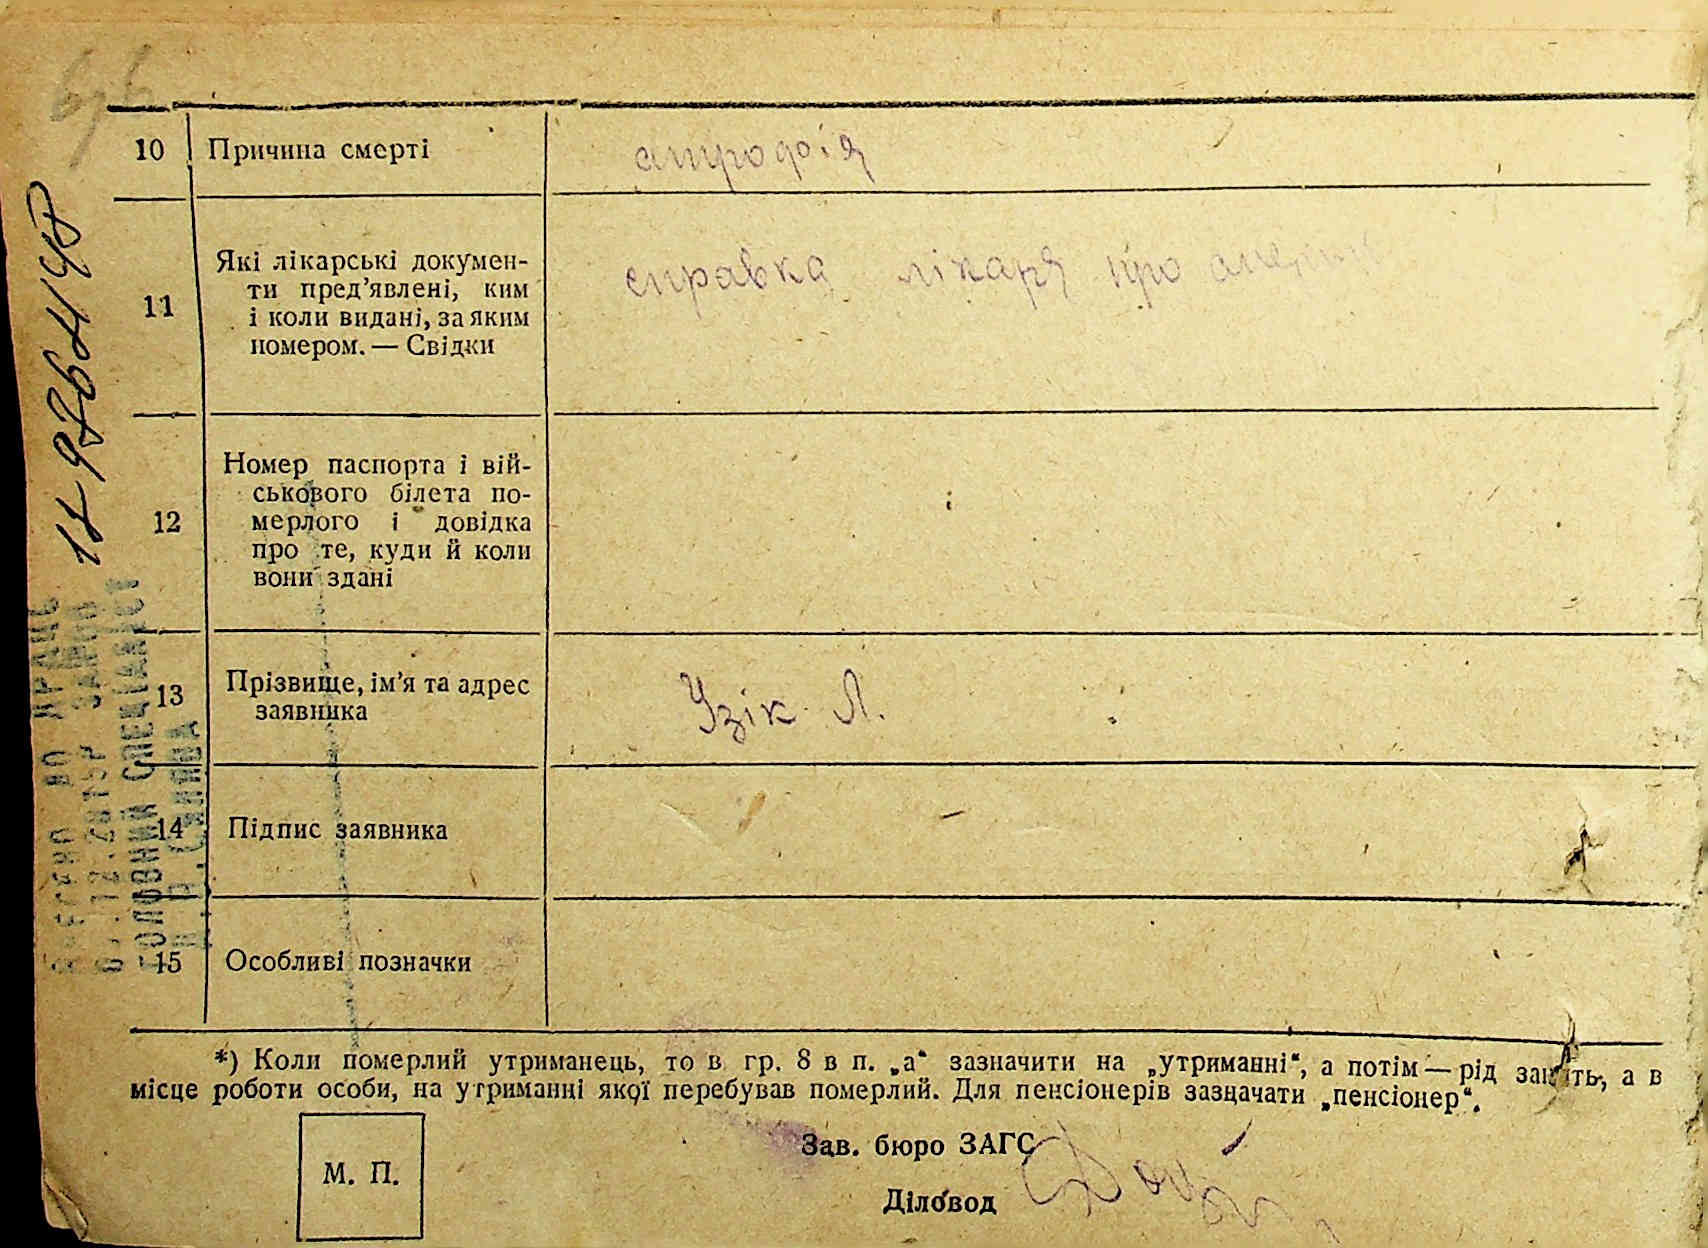 10 Причина смерті атрофія
11 Які лікарські докумен-
ти пред’явлені, ким
і коли видані, за яким
номером. — Свідки
справка лікаря про
12 Номер паспорта і вій-
ськового білета по-
мерлого і довідка
про те, куди й коли
вони здані
13 Прізвище, ім’я та адрес
заявника
Узік Л.
14 Підпис заявника
15 Особливі позначки
*) Коли померлий утриманець, то в гр. 8 в п. „а“ зазначити на „утриманні“, а потім — рід занять, а в
місце роботи особи, на утриманні якої перебував померлий. Для пенсіонерів зазначати „пенсіонер“.
М. П.
Зав. бюро ЗАГС
Діловод